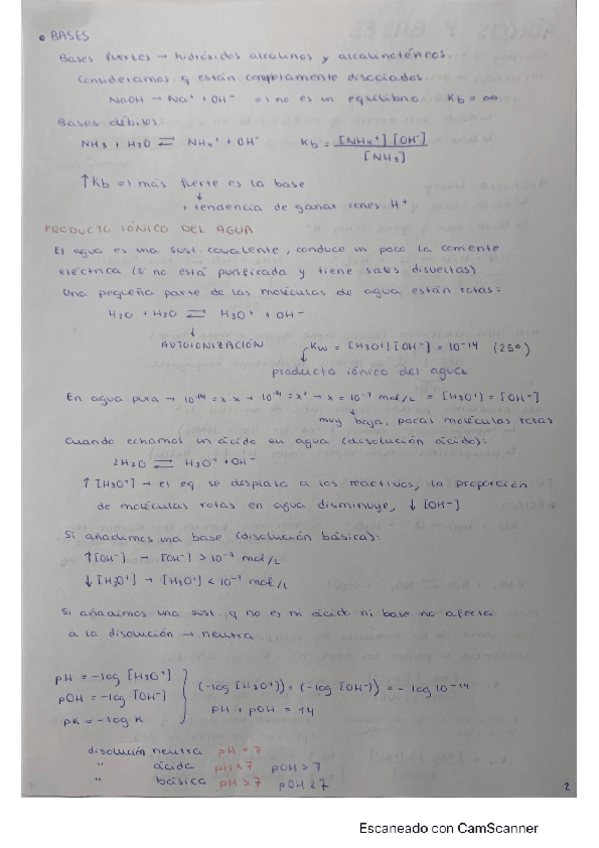 • BASES
Bases fuertes → hidróxidos alcalinos y alcalinotérreos.
Consideramos q están completamente disociados
NaOH → Na⁺ + OH⁻ => no es un equilibrio Kb = ∞
Bases débiles:
NH3 + H2O ⇌ NH4⁺ + OH⁻ Kb = [NH4⁺] [OH⁻] / [NH3]
↑Kb => más fuerte es la base
↓
+ tendencia de ganar iones H⁺
PRODUCTO IÓNICO DEL AGUA
El agua es una sust. covalente, conduce un poco la corriente
eléctrica (si no está purificada y tiene sales disueltas)
Una pequeña parte de las moléculas de agua están rotas:
H2O + H2O ⇌ H3O⁺ + OH⁻
↓
AUTOIONIZACIÓN Kw = [H3O⁺][OH⁻] = 10⁻¹⁴ (25º)
producto iónico del agua
En agua pura → 10⁻¹⁴ = x x → 10⁻¹⁴ = x² → x = 10⁻⁷ mol/L = [H3O⁺] = [OH⁻]
muy baja, pocas moléculas rotas
Cuando echamos un ácido en agua (disolución ácido):
2H2O ⇌ H3O⁺ + OH⁻
↑ [H3O⁺] → el eq se desplaza a los reactivos, la proporción
de moléculas rotas en agua disminuye, ↓ [OH⁻]
Si añadimos una base (disolución básica):
↑[OH⁻] → [OH⁻] > 10⁻⁷ mol/L
↓[H3O⁺] → [H3O⁺] < 10⁻⁷ mol/L
Si añadimos una sust. q no es ni ácido ni base no afecta
a la disolución → neutra
pH = -log [H3O⁺]
pOH = -log [OH⁻] } (-log [H3O⁺]) + (-log [OH⁻]) = -log 10⁻¹⁴
pK = -log K pH + pOH = 14
disolución neutra pH = 7
" ácida pH < 7 pOH > 7
" básica pH > 7 pOH < 7
2
Escaneado con CamScanner